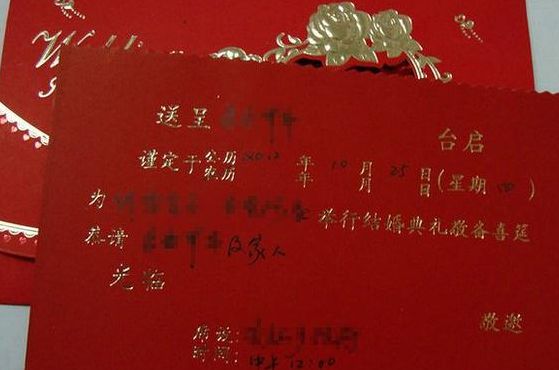 送呈 台启
谨定于公历2012年10月25日(星期四)
农历 年 月 日
为 举行结婚典礼敬备喜筵
恭请 及家人
光临
敬邀
席设:
时间:中午12:00